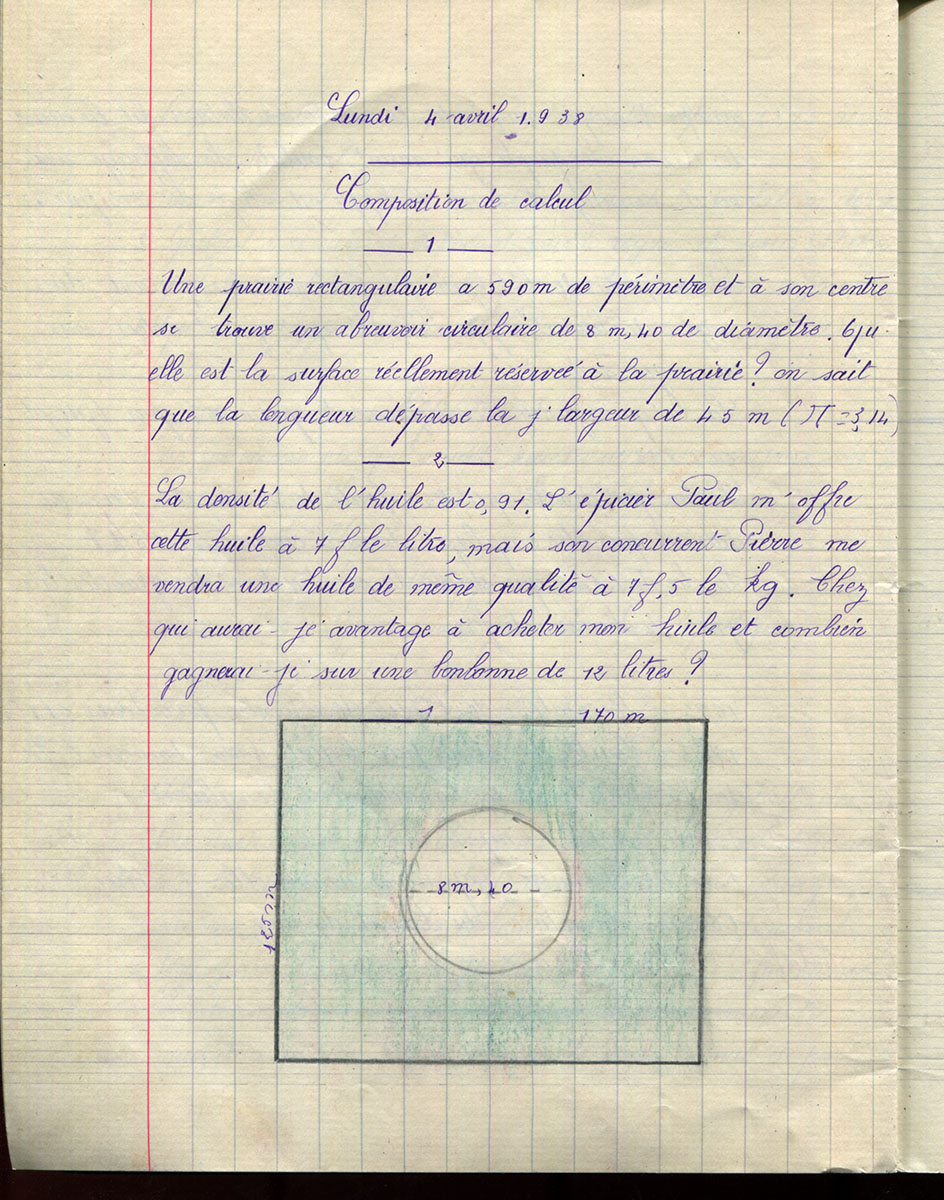 Lundi 4 avril 1.938
Composition de calcul
1
Une prairie rectangulaire a 590m de périmètre et à son centre
se trouve un abreuvoir circulaire de 8 m,40 de diamètre. Qu-
elle est la surface réellement réservée à la prairie? on sait
que la longueur dépasse la largeur de 45 m (π = 3,14)
2
La densité de l'huile est 0,91. L'épicier Paul m'offre
cette huile à 7 f le litre, mais son concurrent Pierre me
vendra une huile de même qualité à 7f,5 le kg. Chez
qui aurai-je avantage à acheter mon huile et combien
gagnerai-je sur une bonbonne de 12 litres?
1 170 m
8m,40
125m